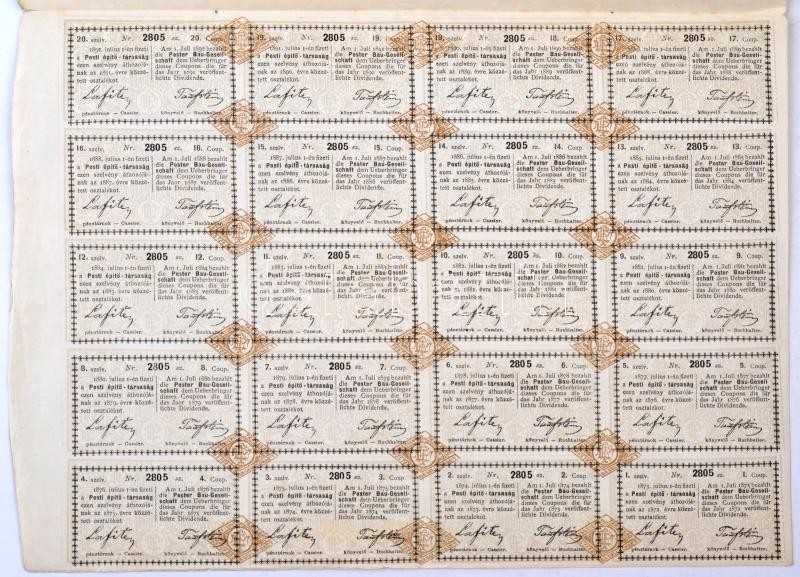 20. szelv. Nr. 2805 sz. 20. Coup.
1892. julius 1-én fizeti
a Pesti építő-társaság
ezen szelvény áthozójá-
nak az 1891. évre közzé-
tett osztalékot.
Am 1. Juli 1892 bezahlt
die Pester Bau-Gesell-
schaft dem Ueberbringer
dieses Coupons die für
das Jahr 1891 veröffent-
lichte Dividende.
Lafite
pénztárnok — Cassier. könyvelő — Buchhalter.
19. szelv. Nr. 2805 sz. 19. Coup.
1891. julius 1-én fizeti
a Pesti építő-társaság
ezen szelvény áthozójá-
nak az 1890. évre közzé-
tett osztalékot.
Am 1. Juli 1891 bezahlt
die Pester Bau-Gesell-
schaft dem Ueberbringer
dieses Coupons die für
das Jahr 1890 veröffent-
lichte Dividende.
Lafite
pénztárnok — Cassier. könyvelő — Buchhalter.
18. szelv. Nr. 2805 sz. 18. Coup.
1890. julius 1-én fizeti
a Pesti építő-társaság
ezen szelvény áthozójá-
nak az 1889. évre közzé-
tett osztalékot.
Am 1. Juli 1890 bezahlt
die Pester Bau-Gesell-
schaft dem Ueberbringer
dieses Coupons die für
das Jahr 1889 veröffent-
lichte Dividende.
Lafite
pénztárnok — Cassier. könyvelő — Buchhalter.
17. szelv. Nr. 2805 sz. 17. Coup.
1889. julius 1-én fizeti
a Pesti építő-társaság
ezen szelvény áthozójá-
nak az 1888. évre közzé-
tett osztalékot.
Am 1. Juli 1889 bezahlt
die Pester Bau-Gesell-
schaft dem Ueberbringer
dieses Coupons die für
das Jahr 1888 veröffent-
lichte Dividende.
Lafite
pénztárnok — Cassier. könyvelő — Buchhalter.
16. szelv. Nr. 2805 sz. 16. Coup.
1888. julius 1-én fizeti
a Pesti építő-társaság
ezen szelvény áthozójá-
nak az 1887. évre közzé-
tett osztalékot.
Am 1. Juli 1888 bezahlt
die Pester Bau-Gesell-
schaft dem Ueberbringer
dieses Coupons die für
das Jahr 1887 veröffent-
lichte Dividende.
Lafite
pénztárnok — Cassier. könyvelő — Buchhalter.
15. szelv. Nr. 2805 sz. 15. Coup.
1887. julius 1-én fizeti
a Pesti építő-társaság
ezen szelvény áthozójá-
nak az 1886. évre közzé-
tett osztalékot.
Am 1. Juli 1887 bezahlt
die Pester Bau-Gesell-
schaft dem Ueberbringer
dieses Coupons die für
das Jahr 1886 veröffent-
lichte Dividende.
Lafite
pénztárnok — Cassier. könyvelő — Buchhalter.
14. szelv. Nr. 2805 sz. 14. Coup.
1886. julius 1-én fizeti
a Pesti építő-társaság
ezen szelvény áthozójá-
nak az 1885. évre közzé-
tett osztalékot.
Am 1. Juli 1886 bezahlt
die Pester Bau-Gesell-
schaft dem Ueberbringer
dieses Coupons die für
das Jahr 1885 veröffent-
lichte Dividende.
Lafite
pénztárnok — Cassier. könyvelő — Buchhalter.
13. szelv. Nr. 2805 sz. 13. Coup.
1885. julius 1-én fizeti
a Pesti építő-társaság
ezen szelvény áthozójá-
nak az 1884. évre közzé-
tett osztalékot.
Am 1. Juli 1885 bezahlt
die Pester Bau-Gesell-
schaft dem Ueberbringer
dieses Coupons die für
das Jahr 1884 veröffent-
lichte Dividende.
Lafite
pénztárnok — Cassier. könyvelő — Buchhalter.
12. szelv. Nr. 2805 sz. 12. Coup.
1884. julius 1-én fizeti
a Pesti építő-társaság
ezen szelvény áthozójá-
nak az 1883. évre közzé-
tett osztalékot.
Am 1. Juli 1884 bezahlt
die Pester Bau-Gesell-
schaft dem Ueberbringer
dieses Coupons die für
das Jahr 1883 veröffent-
lichte Dividende.
Lafite
pénztárnok — Cassier. könyvelő — Buchhalter.
11. szelv. Nr. 2805 sz. 11. Coup.
1883. julius 1-én fizeti
a Pesti építő-társaság
ezen szelvény áthozójá-
nak az 1882. évre közzé-
tett osztalékot.
Am 1. Juli 1883 bezahlt
die Pester Bau-Gesell-
schaft dem Ueberbringer
dieses Coupons die für
das Jahr 1882 veröffent-
lichte Dividende.
Lafite
pénztárnok — Cassier. könyvelő — Buchhalter.
10. szelv. Nr. 2805 sz. 10. Coup.
1882. julius 1-én fizeti
a Pesti építő-társaság
ezen szelvény áthozójá-
nak az 1881. évre közzé-
tett osztalékot.
Am 1. Juli 1882 bezahlt
die Pester Bau-Gesell-
schaft dem Ueberbringer
dieses Coupons die für
das Jahr 1881 veröffent-
lichte Dividende.
Lafite
pénztárnok — Cassier. könyvelő — Buchhalter.
9. szelv. Nr. 2805 sz. 9. Coup.
1881. julius 1-én fizeti
a Pesti építő-társaság
ezen szelvény áthozójá-
nak az 1880. évre közzé-
tett osztalékot.
Am 1. Juli 1881 bezahlt
die Pester Bau-Gesell-
schaft dem Ueberbringer
dieses Coupons die für
das Jahr 1880 veröffent-
lichte Dividende.
Lafite
pénztárnok — Cassier. könyvelő — Buchhalter.
8. szelv. Nr. 2805 sz. 8. Coup.
1880. julius 1-én fizeti
a Pesti építő-társaság
ezen szelvény áthozójá-
nak az 1879. évre közzé-
tett osztalékot.
Am 1. Juli 1880 bezahlt
die Pester Bau-Gesell-
schaft dem Ueberbringer
dieses Coupons die für
das Jahr 1879 veröffent-
lichte Dividende.
Lafite
pénztárnok — Cassier. könyvelő — Buchhalter.
7. szelv. Nr. 2805 sz. 7. Coup.
1879. julius 1-én fizeti
a Pesti építő-társaság
ezen szelvény áthozójá-
nak az 1878. évre közzé-
tett osztalékot.
Am 1. Juli 1879 bezahlt
die Pester Bau-Gesell-
schaft dem Ueberbringer
dieses Coupons die für
das Jahr 1878 veröffent-
lichte Dividende.
Lafite
pénztárnok — Cassier. könyvelő — Buchhalter.
6. szelv. Nr. 2805 sz. 6. Coup.
1878. julius 1-én fizeti
a Pesti építő-társaság
ezen szelvény áthozójá-
nak az 1877. évre közzé-
tett osztalékot.
Am 1. Juli 1878 bezahlt
die Pester Bau-Gesell-
schaft dem Ueberbringer
dieses Coupons die für
das Jahr 1877 veröffent-
lichte Dividende.
Lafite
pénztárnok — Cassier. könyvelő — Buchhalter.
5. szelv. Nr. 2805 sz. 5. Coup.
1877. julius 1-én fizeti
a Pesti építő-társaság
ezen szelvény áthozójá-
nak az 1876. évre közzé-
tett osztalékot.
Am 1. Juli 1877 bezahlt
die Pester Bau-Gesell-
schaft dem Ueberbringer
dieses Coupons die für
das Jahr 1876 veröffent-
lichte Dividende.
Lafite
pénztárnok — Cassier. könyvelő — Buchhalter.
4. szelv. Nr. 2805 sz. 4. Coup.
1876. julius 1-én fizeti
a Pesti építő-társaság
ezen szelvény áthozójá-
nak az 1875. évre közzé-
tett osztalékot.
Am 1. Juli 1876 bezahlt
die Pester Bau-Gesell-
schaft dem Ueberbringer
dieses Coupons die für
das Jahr 1875 veröffent-
lichte Dividende.
Lafite
pénztárnok — Cassier. könyvelő — Buchhalter.
3. szelv. Nr. 2805 sz. 3. Coup.
1875. julius 1-én fizeti
a Pesti építő-társaság
ezen szelvény áthozójá-
nak az 1874. évre közzé-
tett osztalékot.
Am 1. Juli 1875 bezahlt
die Pester Bau-Gesell-
schaft dem Ueberbringer
dieses Coupons die für
das Jahr 1874 veröffent-
lichte Dividende.
Lafite
pénztárnok — Cassier. könyvelő — Buchhalter.
2. szelv. Nr. 2805 sz. 2. Coup.
1874. julius 1-én fizeti
a Pesti építő-társaság
ezen szelvény áthozójá-
nak az 1873. évre közzé-
tett osztalékot.
Am 1. Juli 1874 bezahlt
die Pester Bau-Gesell-
schaft dem Ueberbringer
dieses Coupons die für
das Jahr 1873 veröffent-
lichte Dividende.
Lafite
pénztárnok — Cassier. könyvelő — Buchhalter.
1. szelv. Nr. 2805 sz. 1. Coup.
1873. julius 1-én fizeti
a Pesti építő-társaság
ezen szelvény áthozójá-
nak az 1872. évre közzé-
tett osztalékot.
Am 1. Juli 1873 bezahlt
die Pester Bau-Gesell-
schaft dem Ueberbringer
dieses Coupons die für
das Jahr 1872 veröffent-
lichte Dividende.
Lafite
pénztárnok — Cassier. könyvelő — Buchhalter.